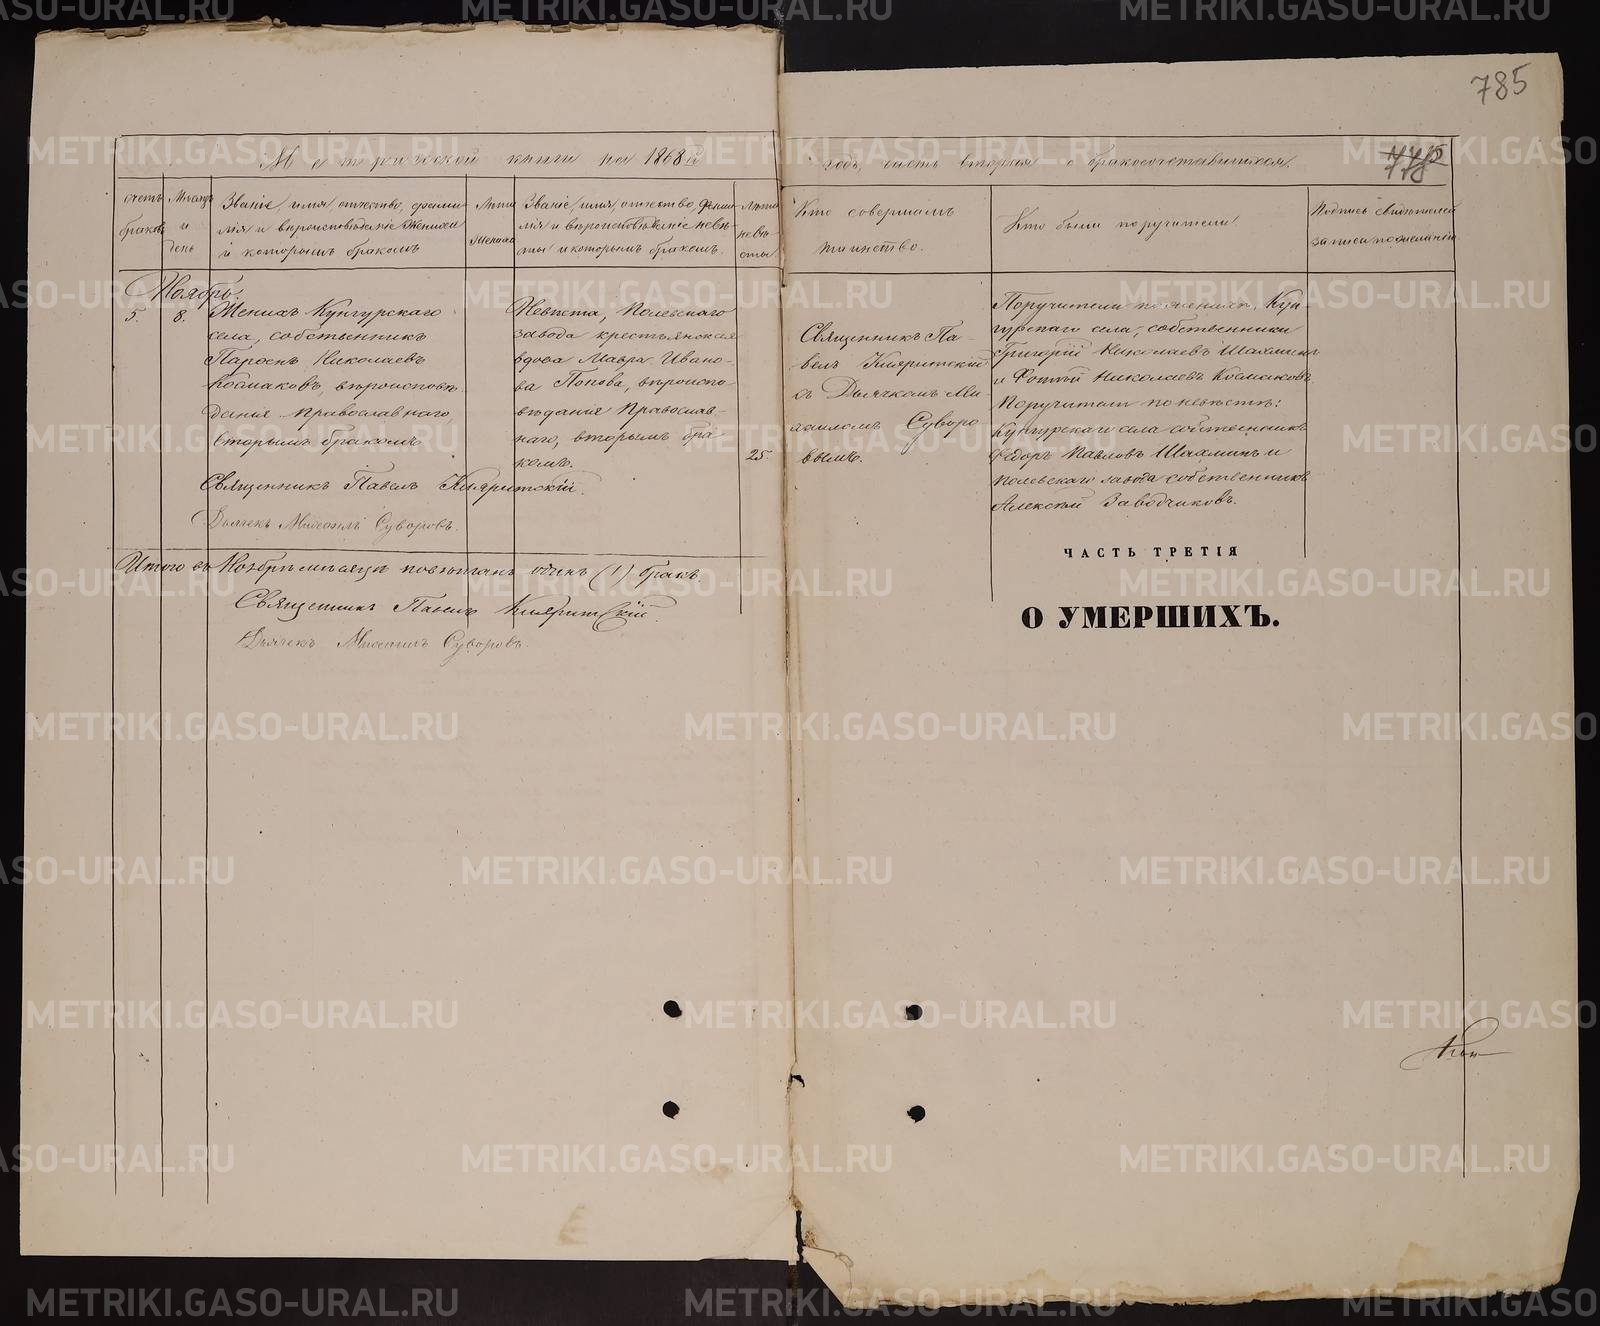 785
Метрической книги на 1868й
годъ, часть вторая о бракосочетавшихся.
775
счетъ браковъ
Мѣсяцъ и день
Званіе, имя, отчество, фами-
лія и вѣроисповѣданіе жениха
и которымъ бракомъ
Лѣта жениха
Званіе, имя, отчество, фами-
лія и вѣроисповѣданіе невѣ-
сты и которымъ бракомъ.
Лѣта невѣ-
сты
Кто совершалъ
таинство.
Кто были поручители
Подпись свидѣтелей
записи по желанію
Ноябрь.
5.
8.
Женихъ Кунгурскаго
села, собственникъ
Парѳенъ Николаевъ
Космаковъ, вѣроисповѣ-
данія православнаго,
вторымъ бракомъ
Невѣста, Полевскаго
завода крестьянская
вдова Мавра Ивано-
ва Попова, вѣроиспо-
вѣданія Православ-
наго, вторымъ бра
комъ.
25.
Священникъ Па-
велъ Кипритскій
съ Дьячкомъ Ми-
хаиломъ Суворо
вымъ.
Поручители по женихѣ: Кун-
гурскаго села, собственники
Григорій Николаевъ Шахминъ
и Фотій Николаевъ Космаковъ
Поручители по невѣстѣ:
Кунгурскаго села собственникъ
Федоръ Павловъ Шахминъ и
Полевскаго завода собственникъ
Алексѣй Заводчиковъ.
Священникъ Павелъ Кипритскій.
Дьячекъ Михаилъ Суворовъ.
Итого въ Ноябрѣ мѣсяцѣ повѣнчанъ одинъ (1) бракъ.
Священникъ Павелъ Кипритскій.
Дьячекъ Михаилъ Суворовъ.
ЧАСТЬ ТРЕТІЯ
О УМЕРШИХЪ.
METRIKI.GASO-URAL.RU